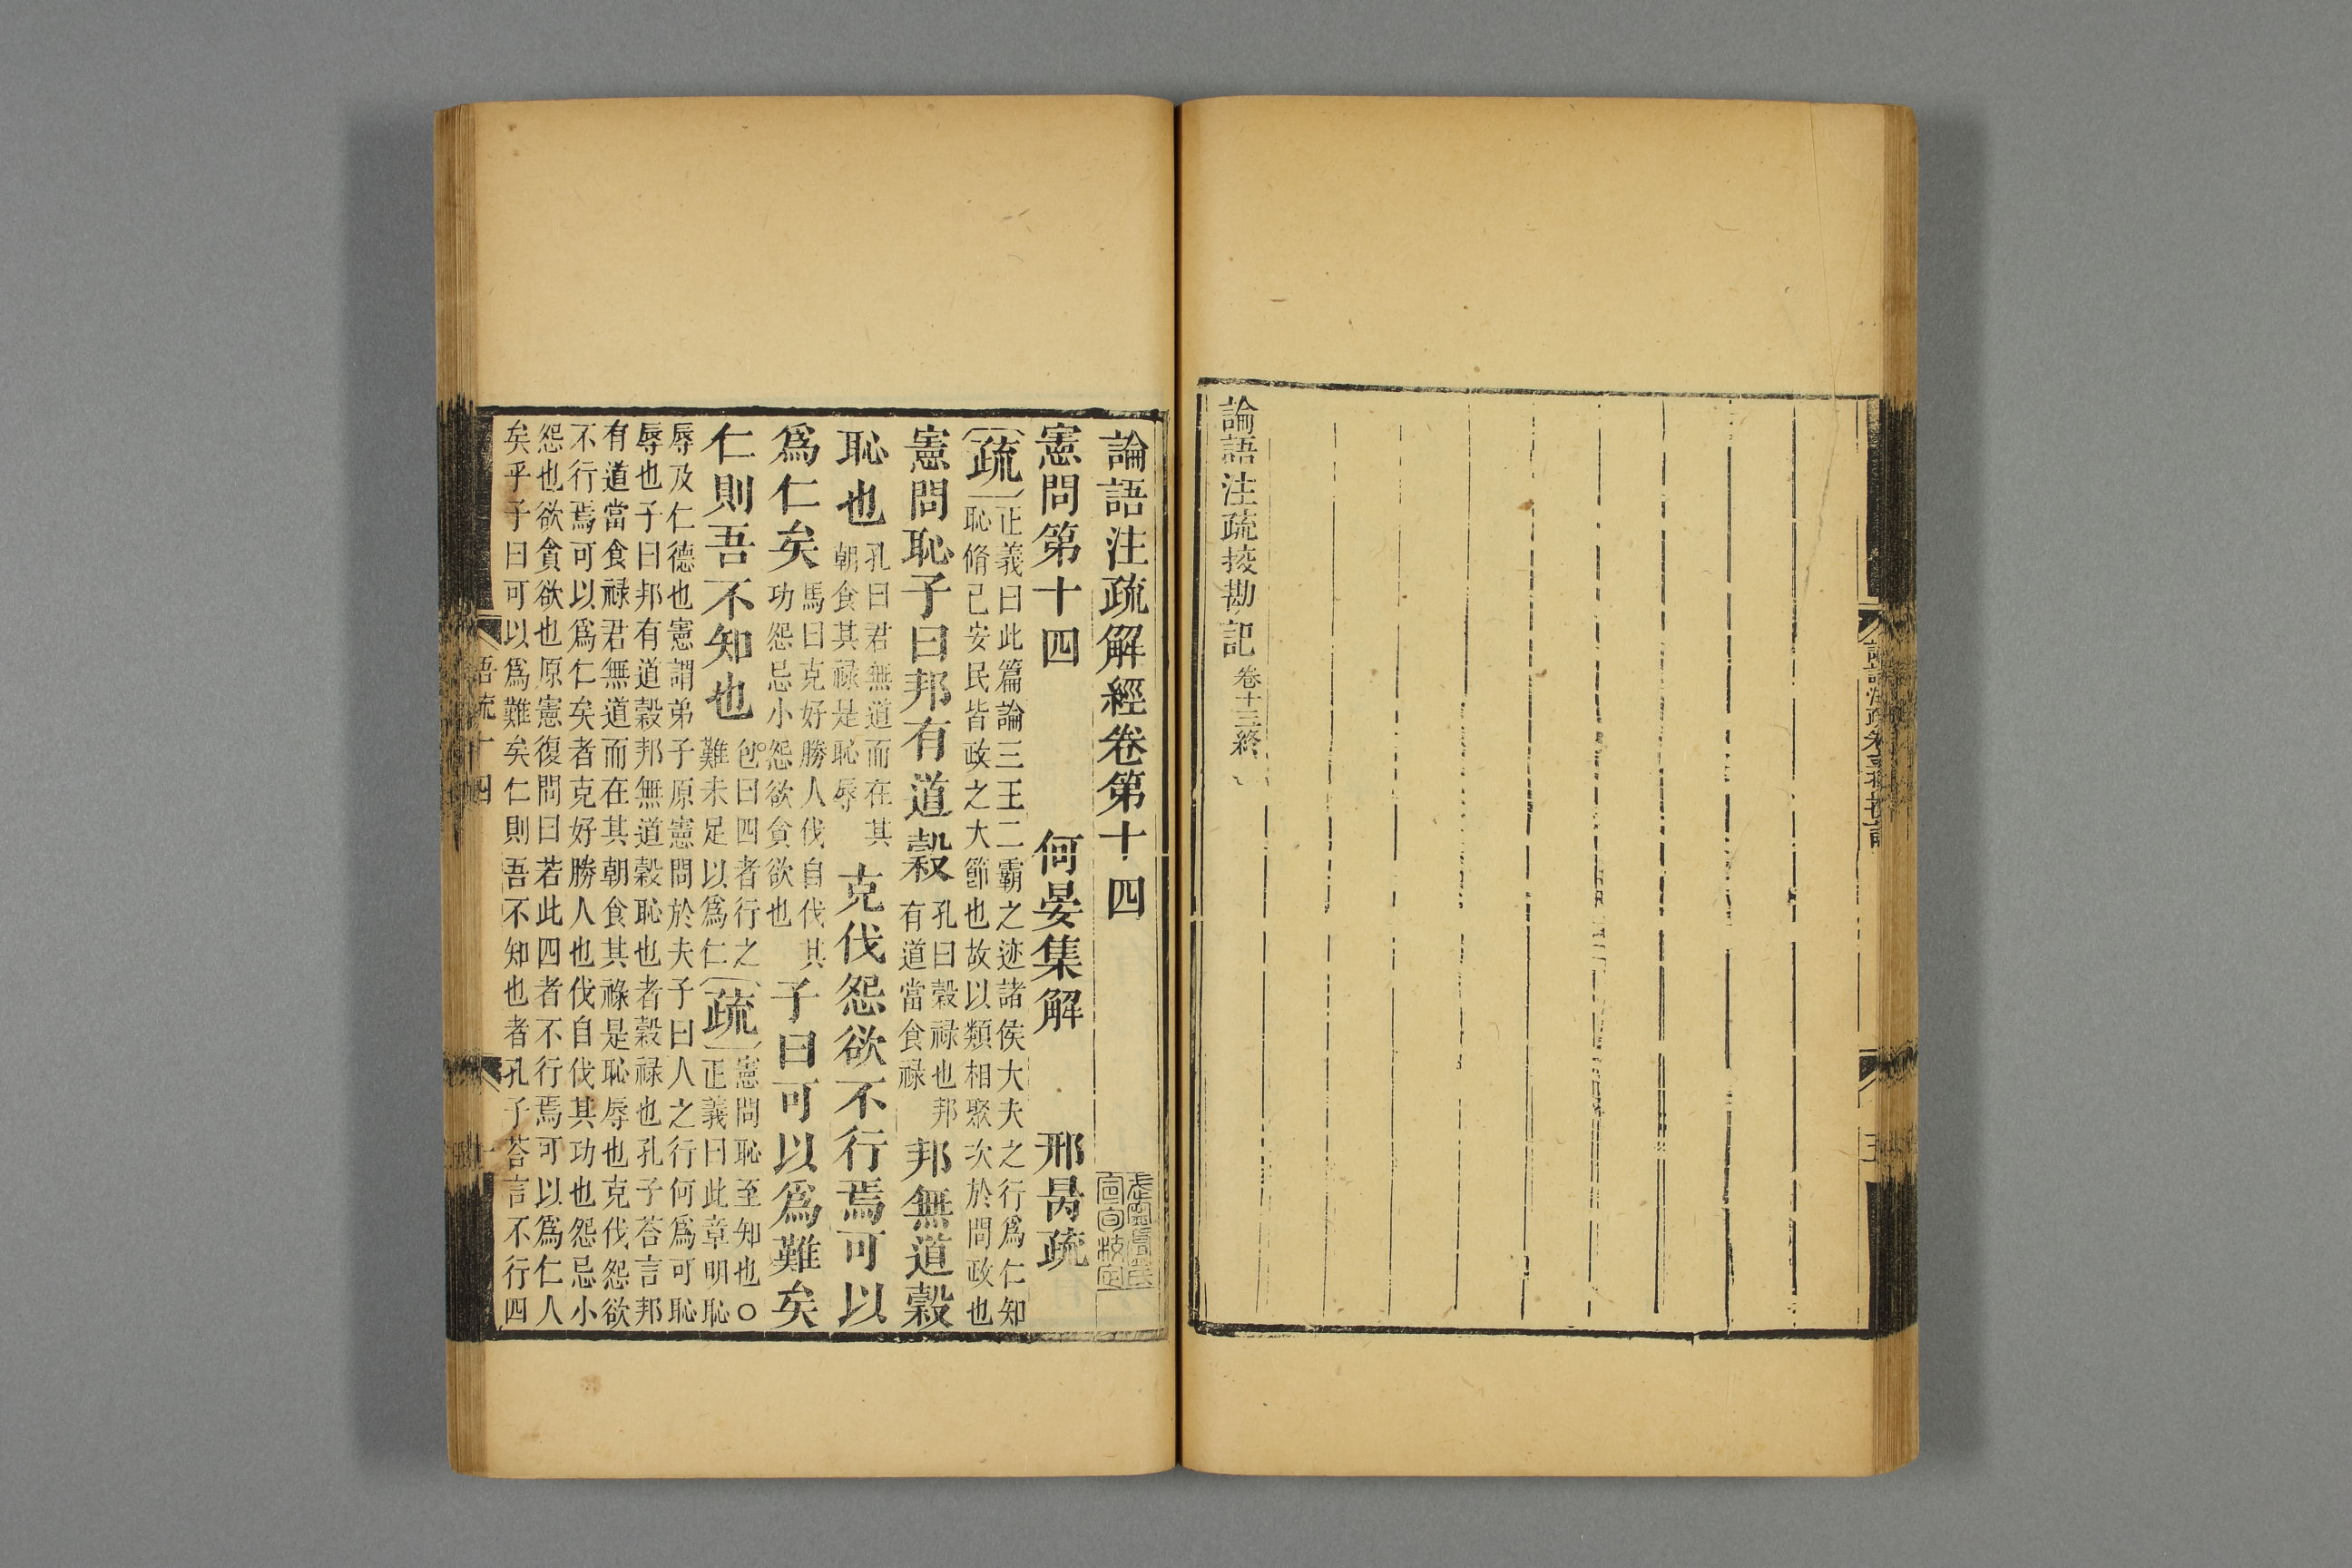 論語注疏挍勘記 卷十三終
論語注疏解經卷第十四
憲問第十四 何晏集解 邢昺疏
疏 正義曰此篇論三王二霸之迹諸侯大夫之行爲仁知
恥脩己安民皆政之大節也故以類相聚次於問政也
憲問恥子曰邦有道穀 孔曰穀祿也邦
有道當食祿 邦無道穀
恥也 孔曰君無道而在其
朝食其祿是恥辱 克伐怨欲不行焉可以
爲仁矣 馬曰克好勝人伐自伐其
功怨忌小怨欲貪欲也 子曰可以爲難矣
仁則吾不知也 包曰四者行之
難未足以爲仁 疏 憲問恥至知也○
正義曰此章明恥
辱及仁德也憲謂弟子原憲問於夫子曰人之行何爲可恥
辱也子曰邦有道穀邦無道穀恥也者穀祿也孔子荅言邦
有道當食祿君無道而在其朝食其祿是恥辱也克伐怨欲
不行焉可以爲仁矣者克好勝人也伐自伐其功也怨忌小
怨也欲貪欲也原憲復問曰若此四者不行焉可以爲仁人
矣乎子曰可以爲難矣仁則吾不知也者孔子荅言不行四
語疏十四